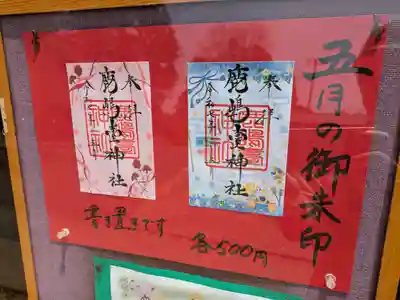 五月の御朱印
奉拝
鹿嶋
神社
奉拝
鹿嶋
神社
書き置きです
各500円